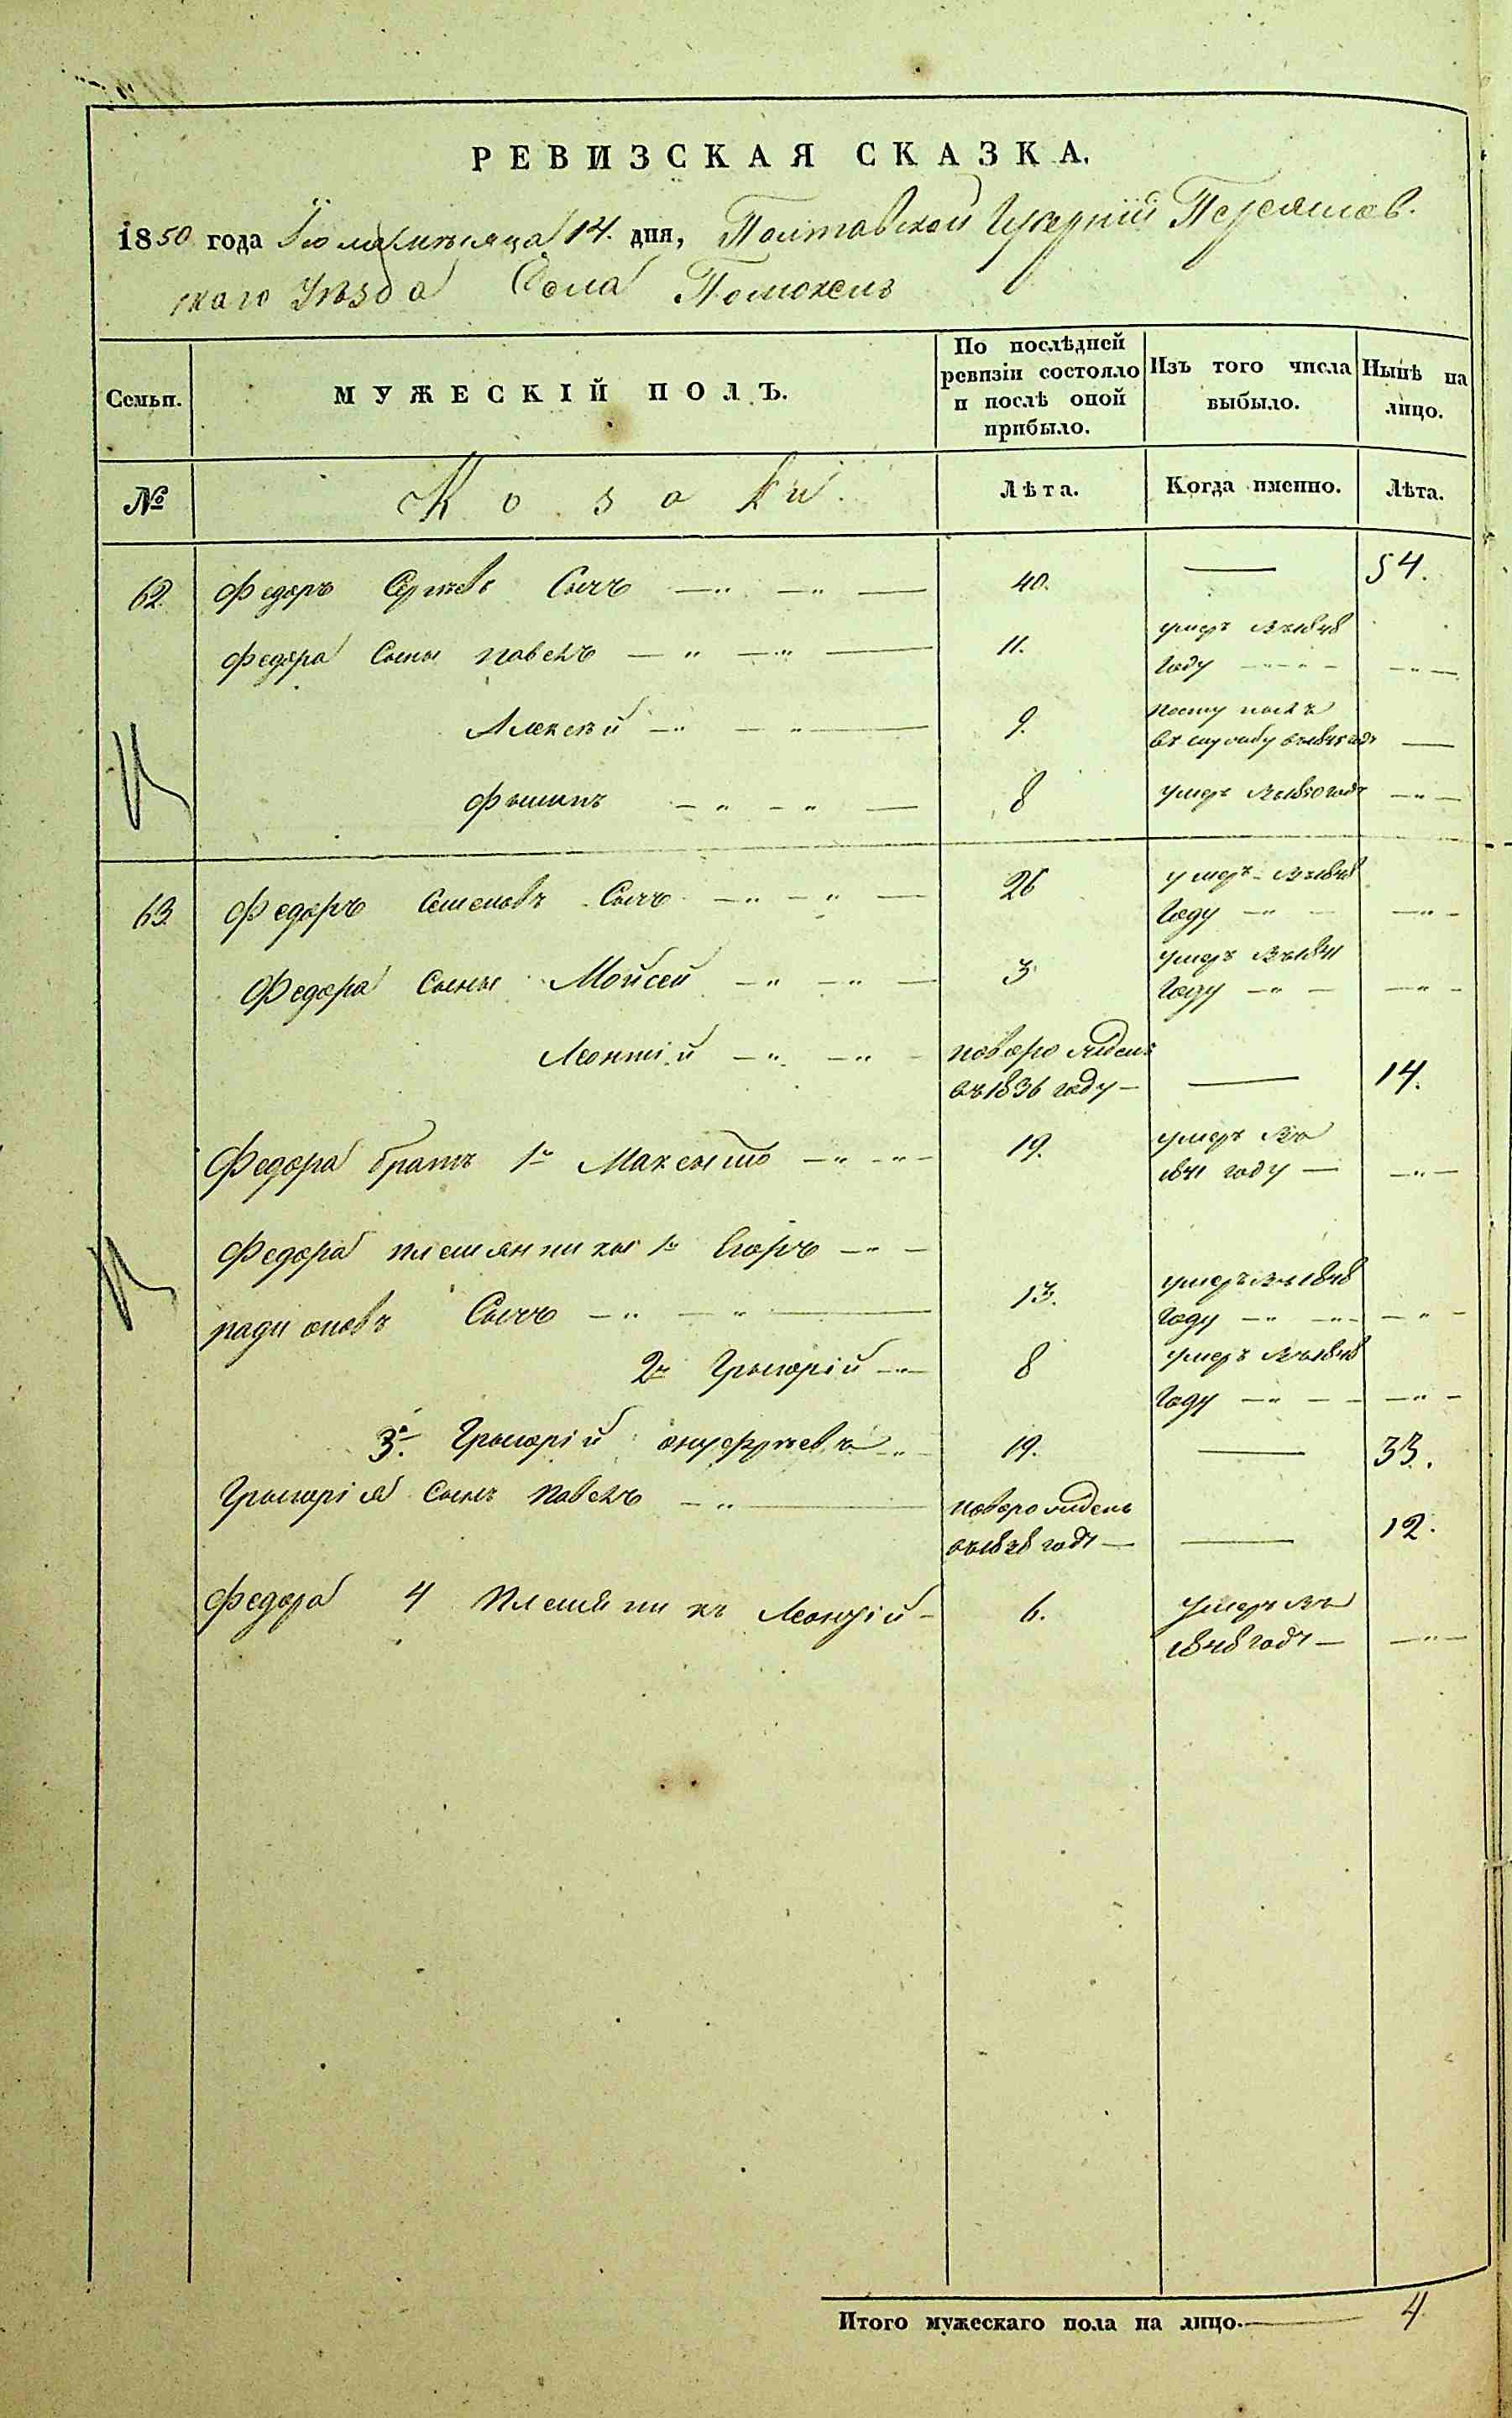 РЕВИЗСКАЯ СКАЗКА.
1850 года Іюля мѣсяца 14. дня, Полтавской Губерніи Переяслов.
скаго Уѣзда Села Помоклъ
Семьи.
МУЖЕСКІЙ ПОЛЪ.
По послѣдней
ревизіи состояло
и послѣ оной
прибыло.
Изъ того числа
выбыло.
Нынѣ на
лицо.
№
Козаки.
Лѣта.
Когда именно.
Лѣта.
62. Федоръ Сергѣевъ Сычъ 40. 54.
Федора Сыны Павелъ 11. умеръ въ 1848
году
Алексѣй 9. поступилъ
въ службу въ годѣ
Филипъ 8 умеръ годѣ
63. Федоръ Семеновъ Сычъ 26 умеръ въ 1848
году
Федора Сыны Мойсей 3 умеръ въ 1841
году
Леонтій новорожденъ
въ 1836 году 14.
Федора братъ 1й Максымъ 19. умеръ въ
1841 году
Федора племянники 1й Егоръ
радионовъ Сычъ 13. умеръ въ 1848
году
2й Грыгорій 8 умеръ въ 1848
году
3й. Грыгорій онуфріевъ 19. 33.
Грыгорія Сынъ Павелъ новорожденъ
въ 1838 годѣ 12.
Федора 4 Племяникъ 6. умеръ въ
1848 годѣ
Итого мужескаго пола на лицо. 4